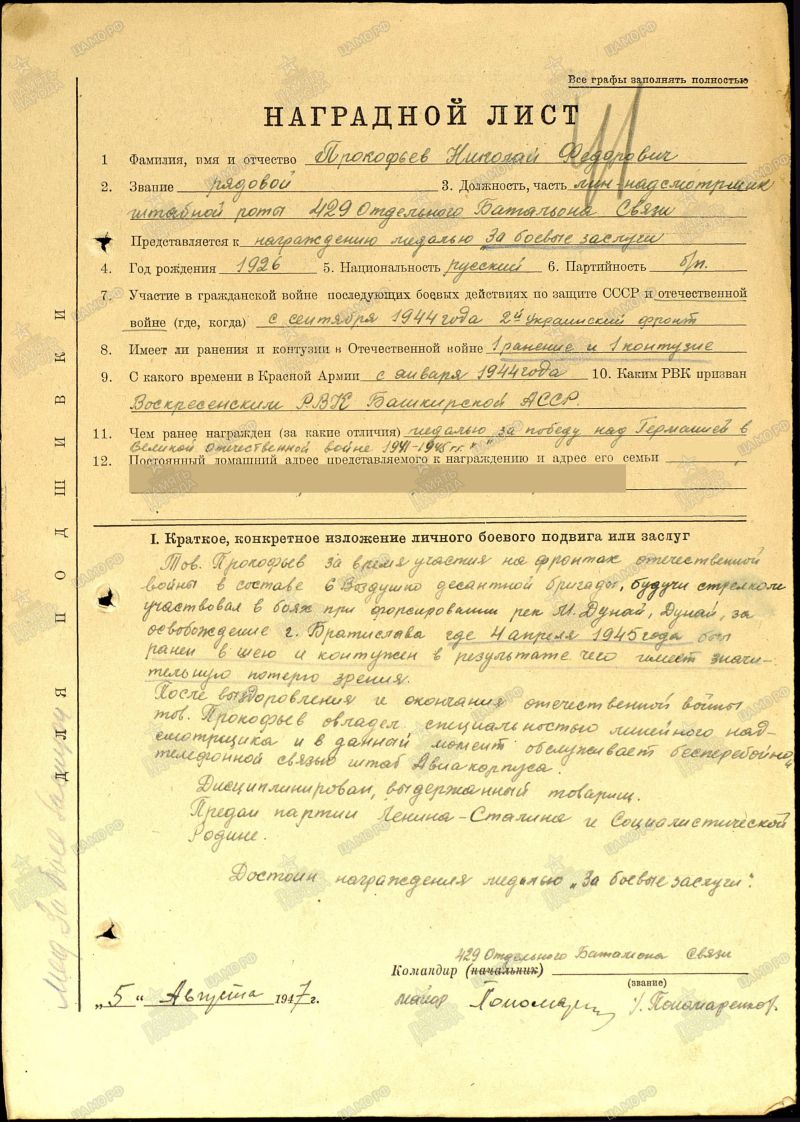 Все графы заполнять полностью
НАГРАДНОЙ ЛИСТ
1 Фамилия, имя и отчество Прокофьев Николай Федорович
2. Звание рядовой 3. Должность, часть лин-надсмотрщик
штабной роты 429 Отдельного Батальона Связи
Представляется к награждению медалью „За боевые заслуги
4. Год рождения 1926 5. Национальность русский 6. Партийность б/п.
7. Участие в гражданской войне последующих боевых действиях по защите СССР и отечественной
войне (где, когда) с сентября 1944 года 2й Украинский фронт
8. Имеет ли ранения и контузии в Отечественной войне 1 ранение и 1 контузие
9. С какого времени в Красной Армии с января 1944 года 10. Каким РВК призван
Воскресенским РВК Башкирской АССР.
11. Чем ранее награжден (за какие отличия) медалью „за победу над Германией в
Великой отечественной войне 1941-1945 гг."
12. Постоянный домашний адрес представляемого к награждению и адрес его семьи
I. Краткое, конкретное изложение личного боевого подвига или заслуг
Тов. Прокофьев за время участия на фронтах отечественной
войны в составе 6 Воздушно десантной бригады, будучи стрелком
участвовал в боях при форсировании рек М. Дунай, Дунай, за
освобождение г. Братислава где 4 апреля 1945 года был
ранен в шею и контужен в результате чего имеет значи-
тельную потерю зрения.
После выздоровления и окончания отечественной войны
тов. Прокофьев овладел специальностью линейного над-
смотрщика и в данный момент обслуживает бесперебойно
телефонной связью штаб Авиакорпуса.
Дисциплинирован, выдержанный товарищ.
Предан партии Ленина-Сталина и Социалистической
Родине.
Достоин награждения медалью „За боевые заслуги".
429 Отдельного Батальона Связи
Командир (начальник)
(звание)
„5" Августа 1947 г.
майор /. Пономаренко/.
для подшивки
Мед За боев заслуги
ЦАМО.РФ
ПАМЯТЬ НАРОДА